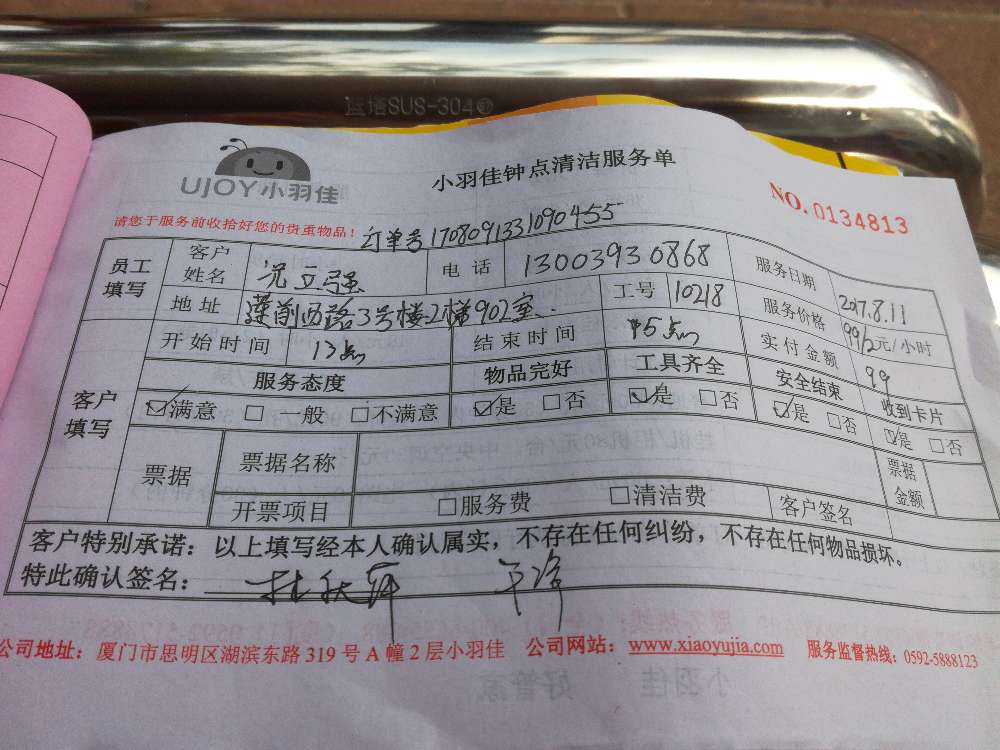 蓝塔SUS-304
UJOY小羽佳
小羽佳钟点清洁服务单
NO.0134813
请您于服务前收拾好您的贵重物品！ 订单号1708091331090455
员工填写 客户姓名 电话 13003930868 服务日期 2017.8.11
地址 莲前西路3号楼2梯902室 工号 10218 服务价格 99/2元/小时
开始时间 13点 结束时间 15点 实付金额 99
客户填写 服务态度 物品完好 工具齐全 安全结束 收到卡片
☑满意 □一般 □不满意 ☑是 □否 ☑是 □否 ☑是 □否 ☑是 □否
票据 票据名称 票据金额
开票项目 □服务费 □清洁费 客户签名
客户特别承诺：以上填写经本人确认属实，不存在任何纠纷，不存在任何物品损坏。
特此确认签名：
公司地址：厦门市思明区湖滨东路 319 号 A 幢 2 层小羽佳 公司网站：www.xiaoyujia.com 服务监督热线：0592-5888123